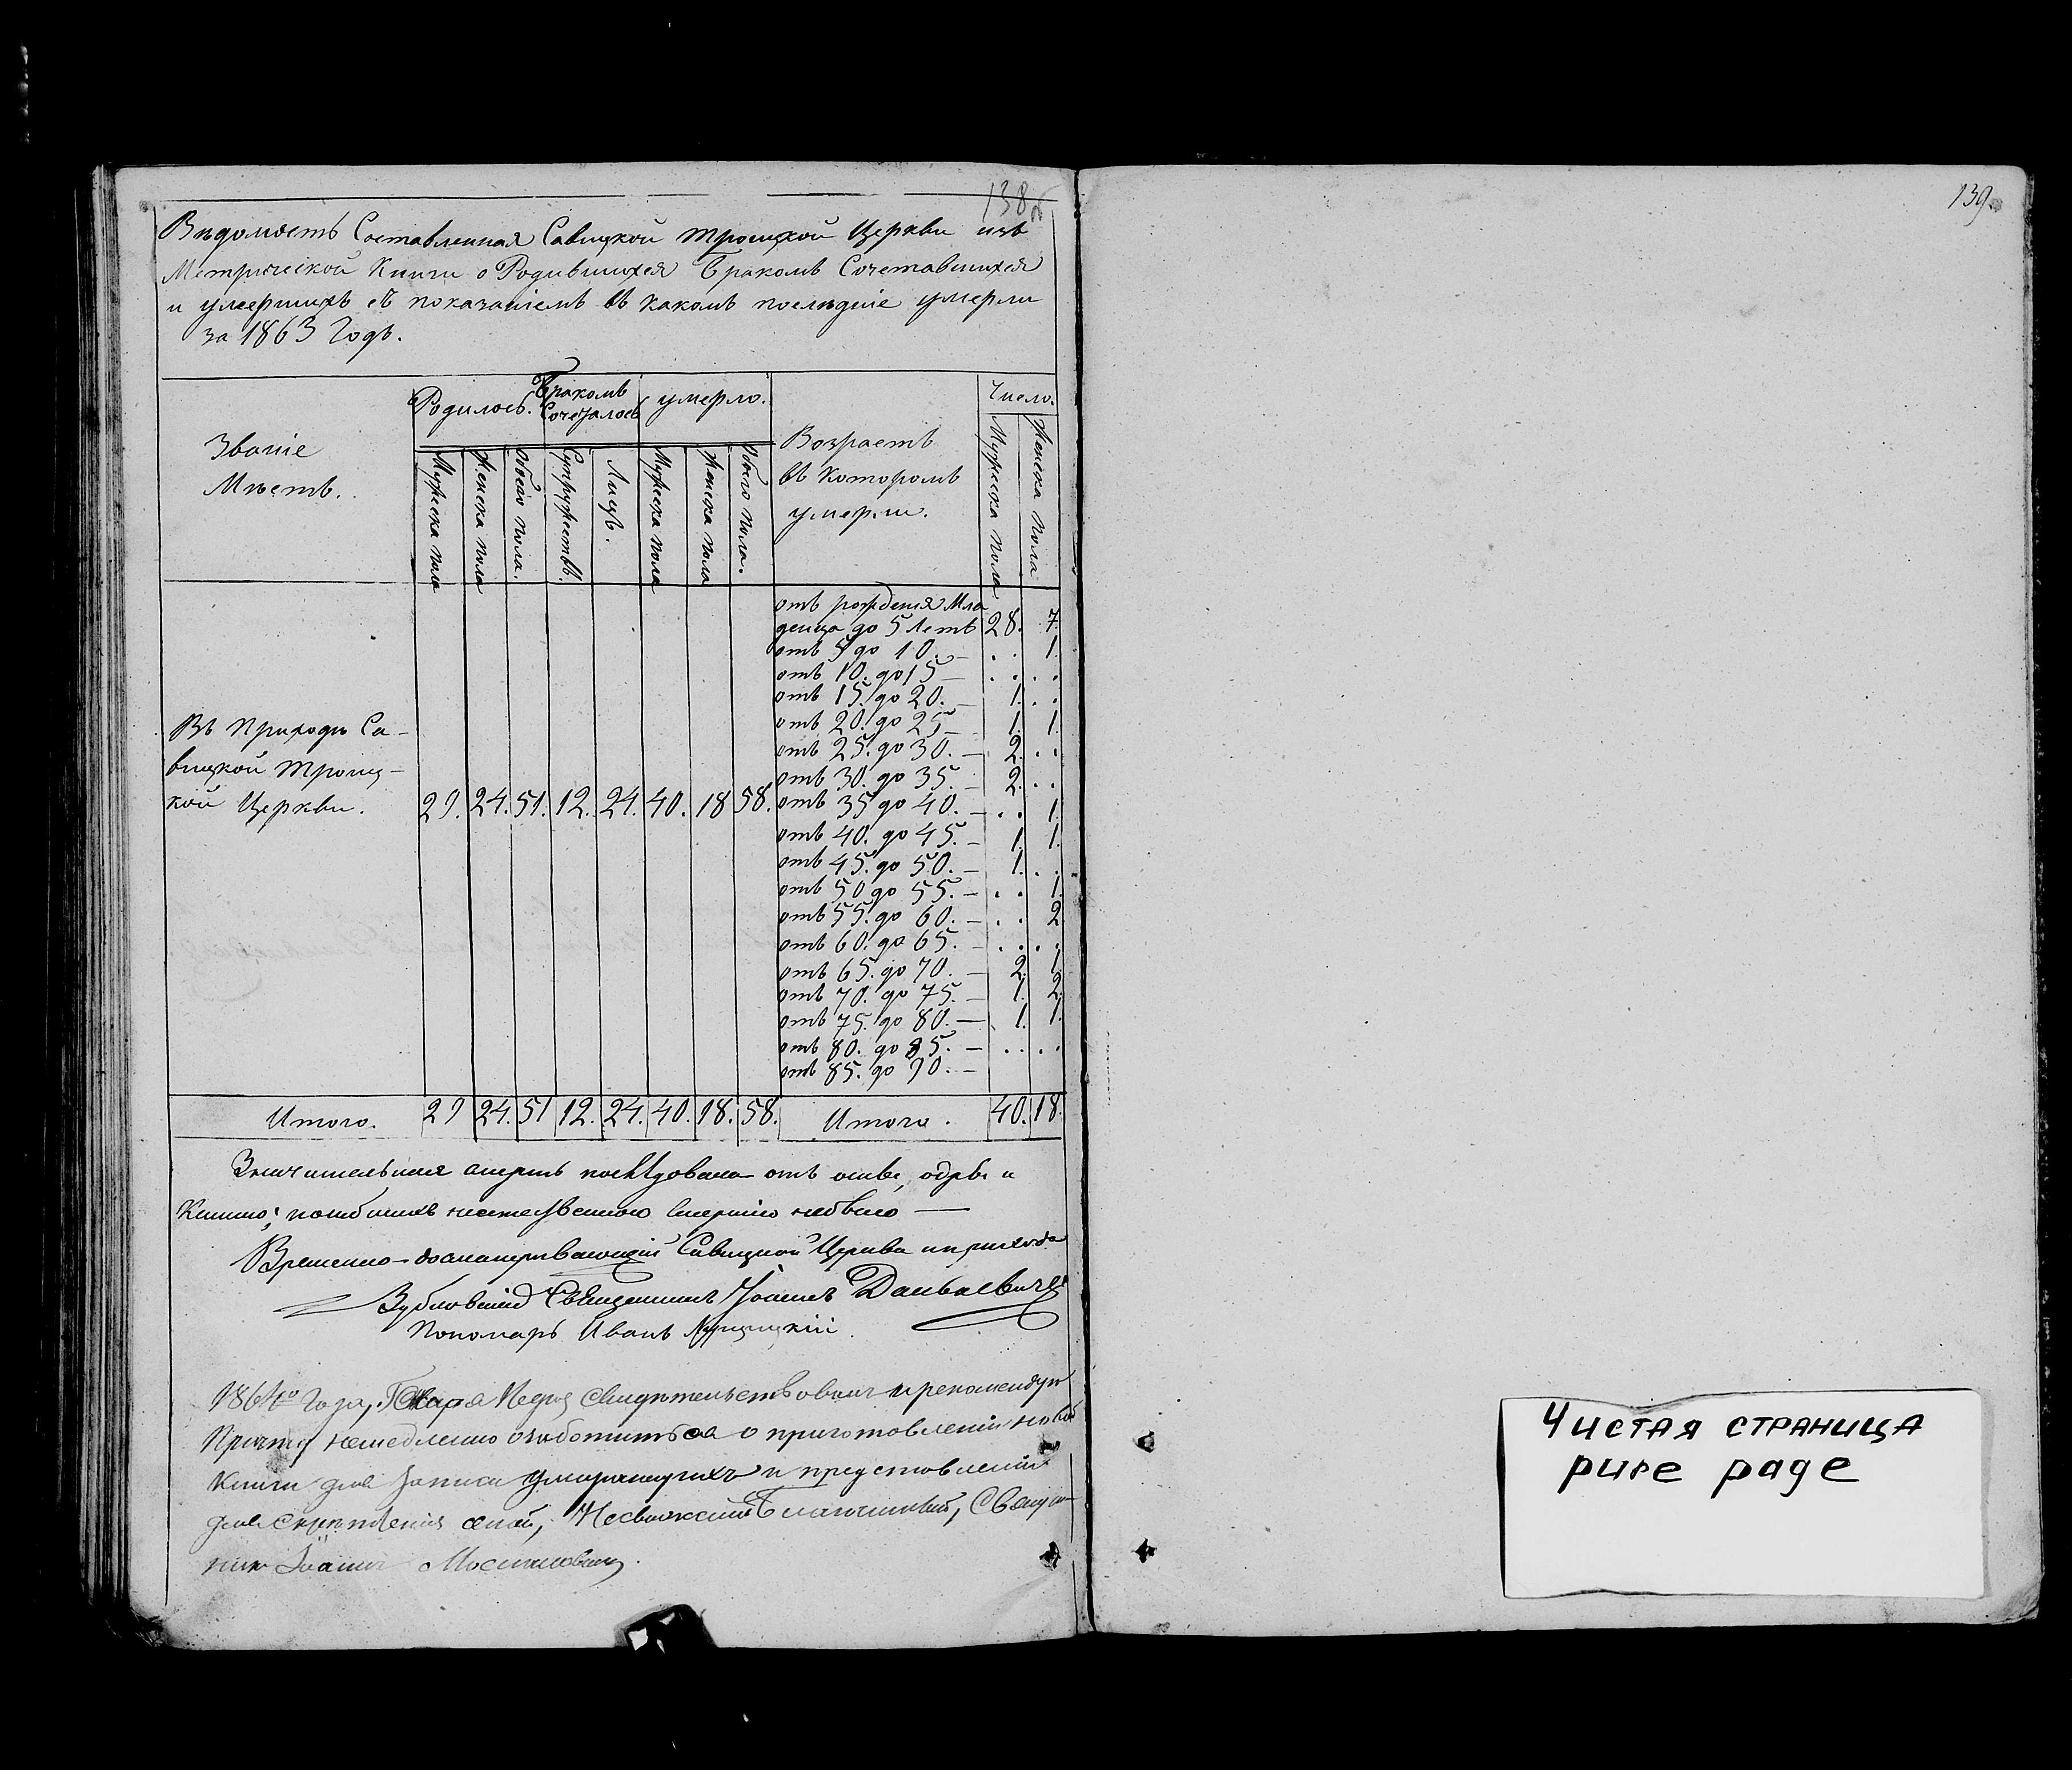 138
Вѣдомость Составленная Савицкой Троицкой Церкви изъ
Метрической Книги о Родившихся Бракомъ Сочетавшихся
и умершихъ съ показаніемъ въ какомъ послѣдніе умерли
за 1863 Годъ.
Званіе
Мѣстъ.
Родилось.
Бракомъ
Сочеталось
умерло.
Возрастъ
въ которомъ
умерли.
Число.
Мужеска пола
Женска пола
Обоего пола.
Супружествъ.
Лицъ.
Мужеска пола
Женска пола
Обоего пола.
Мужеска пола
Женска пола
Въ Приходѣ Са-
вицкой Троиц-
кой Церкви. 29. 24. 51. 12. 24. 40. 18 58.
отъ рожденія Мла
денца до 5 летъ 28. 7.
отъ 5 до 10. — . . 1.
отъ 10. до 15 — . . . .
отъ 15. до 20. — 1. . .
отъ 20. до 25 — 1. 1.
отъ 25. до 30. — 2. . .
отъ 30. до 35. — 2. . .
отъ 35 до 40. — . . 1.
отъ 40. до 45. — 1. 1.
отъ 45. до 50. — 1. . .
отъ 50 до 55. — . . 1.
отъ 55. до 60. — . . 2
отъ 60. до 65. — . . . .
отъ 65. до 70. — 2. 1.
отъ 70. до 75. — 1. 2.
отъ 75. до 80. — 1. 1.
отъ 80. до 85. — . . . .
отъ 85. до 90. —
Итого. 29 24. 51 12. 24. 40. 18. 58. Итого. 40. 18.
Значительная смерть послѣдовала отъ и
смертію небыло —
Временно-досматривающій Савицкой Церкви и прихода
Священникъ Іоаннъ
Пономарь Иванъ
1864го Года, свидѣтельствовалъ и рекомендую
Причту немедленно озаботиться о приготовленіи новой
книги для записи умирающихъ и представленія
для скрѣпленія оной, Благочинный, Священ
никъ Іоаннъ
139
Чистая страница
pure page